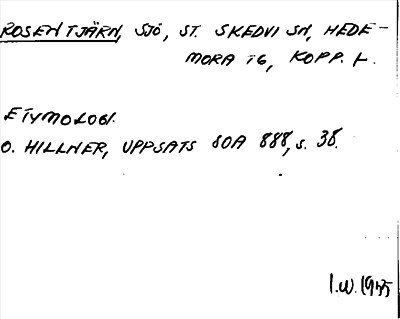 ROSENTJÄRN, SJÖ, ST. SKEDVI SN, HEDE-
MORA TG, KOPP. L.
ETYMOLOGI.
O. HILLNER, UPPSATS SOA 888, s. 38.
I.W. 1955